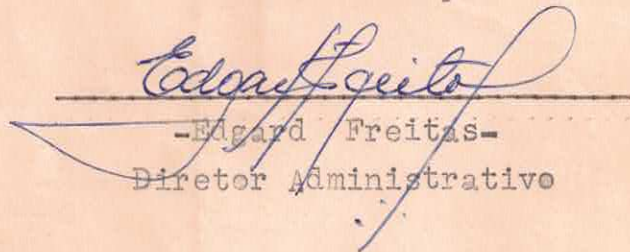 Edgard Freitas
-Edgard Freitas-
Diretor Administrativo